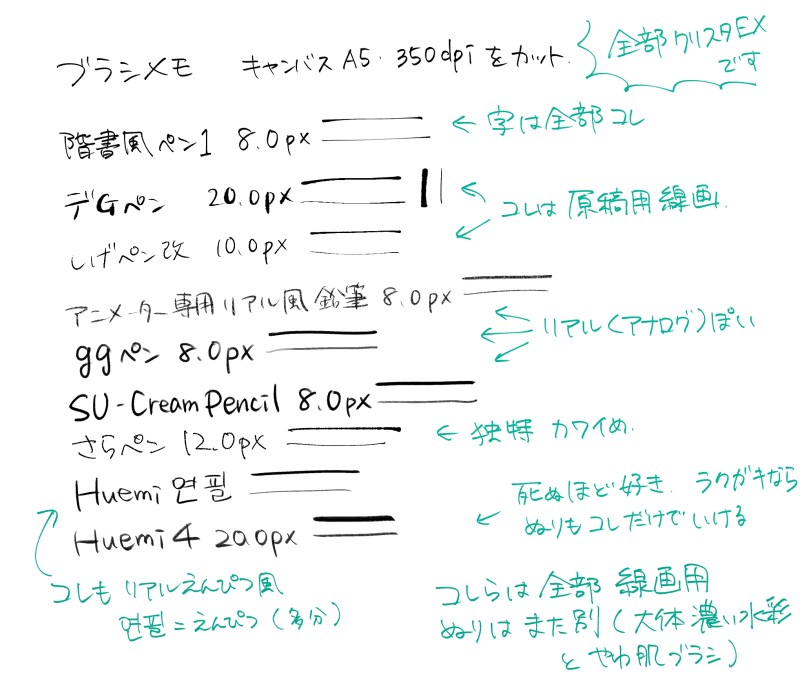 ブラシメモ キャンバス A5・350dpi をカット.
全部クリスタEX
です
階書風ペン1 8.0px
← 字は全部コレ
デGペン 20.0px
コレは原稿用線画.
しげペン改 10.0px
アニメーター専用リアル風鉛筆 8.0px
リアル(アナログ)ぽい
ggペン 8.0px
SU-CreamPencil 8.0px
さらペン 12.0px
← 独特 カワイめ.
Huemi 연필
死ぬほど好き. ラクガキなら
ぬりもコレだけでいける
Huemi4 20.0px
コレもリアルえんぴつ風
연필=えんぴつ(多分)
コレらは全部線画用
ぬりはまた別(大体濃い水彩
とやわ肌ブラシ)